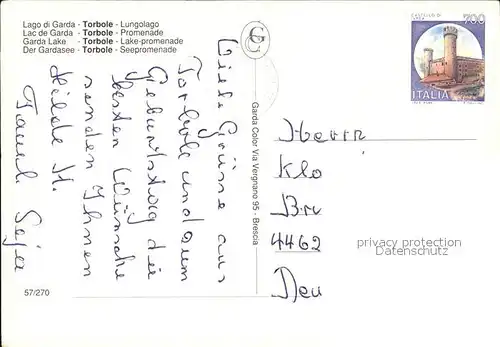 Lago di Garda - Torbole - Lungolago
Lac de Garda - Torbole - Promenade
Garda Lake - Torbole - Lake-promenade
Der Gardasee - Torbole - Seepromenade
Viele Grüsse aus
Torbole und zum
Geburtstag die
besten Wünsche
senden Ihnen
Hilde H.
Garda Color Via Vergnano 95 - Brescia
57/270
700
ITALIA
Herrn
Klo
Br
4462
Deu
privacy protection
Datenschutz